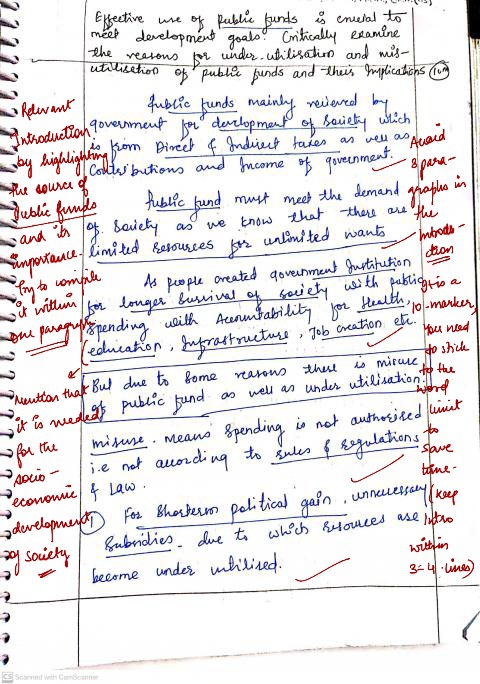 Effective use of public funds is crucial to
meet development goals. Critically examine
the reasons for under-utilisation and mis-
utilisation of public funds and their Implications (10M)
Public funds mainly recieved by
government for development of society which
is from Direct & Indirect taxes as well as
Contributions and Income of government.
Public fund must meet the demand
of society as we know that there are
limited resources for unlimited wants
As people created government Institution
for longer survival of society with public
spending with Accountability for Health,
education, Infrastructure, Job creation etc.
But due to some reasons there is misuse
of public fund as well as under utilisation.
misuse. Means spending is not authorised
i.e not according to rules & regulations
& Law.
1 For Shorterm political gain, unnecessary
Subsidies. due to which resources are
become under utilised.
Relevant
Introduction
by highlighting
the source of
Public funds
and its
importance.
Try to compile
it within
one paragraph
Mention that
it is needed
for the
socio-
economic
development
of society
Avoid
3 para-
graphs in
the
introdu-
ction
It is a
10-marker,
You need
to stick
to the
word
limit
to
save
time.
(keep
Intro
within
3-4 lines)
CS Scanned with CamScanner